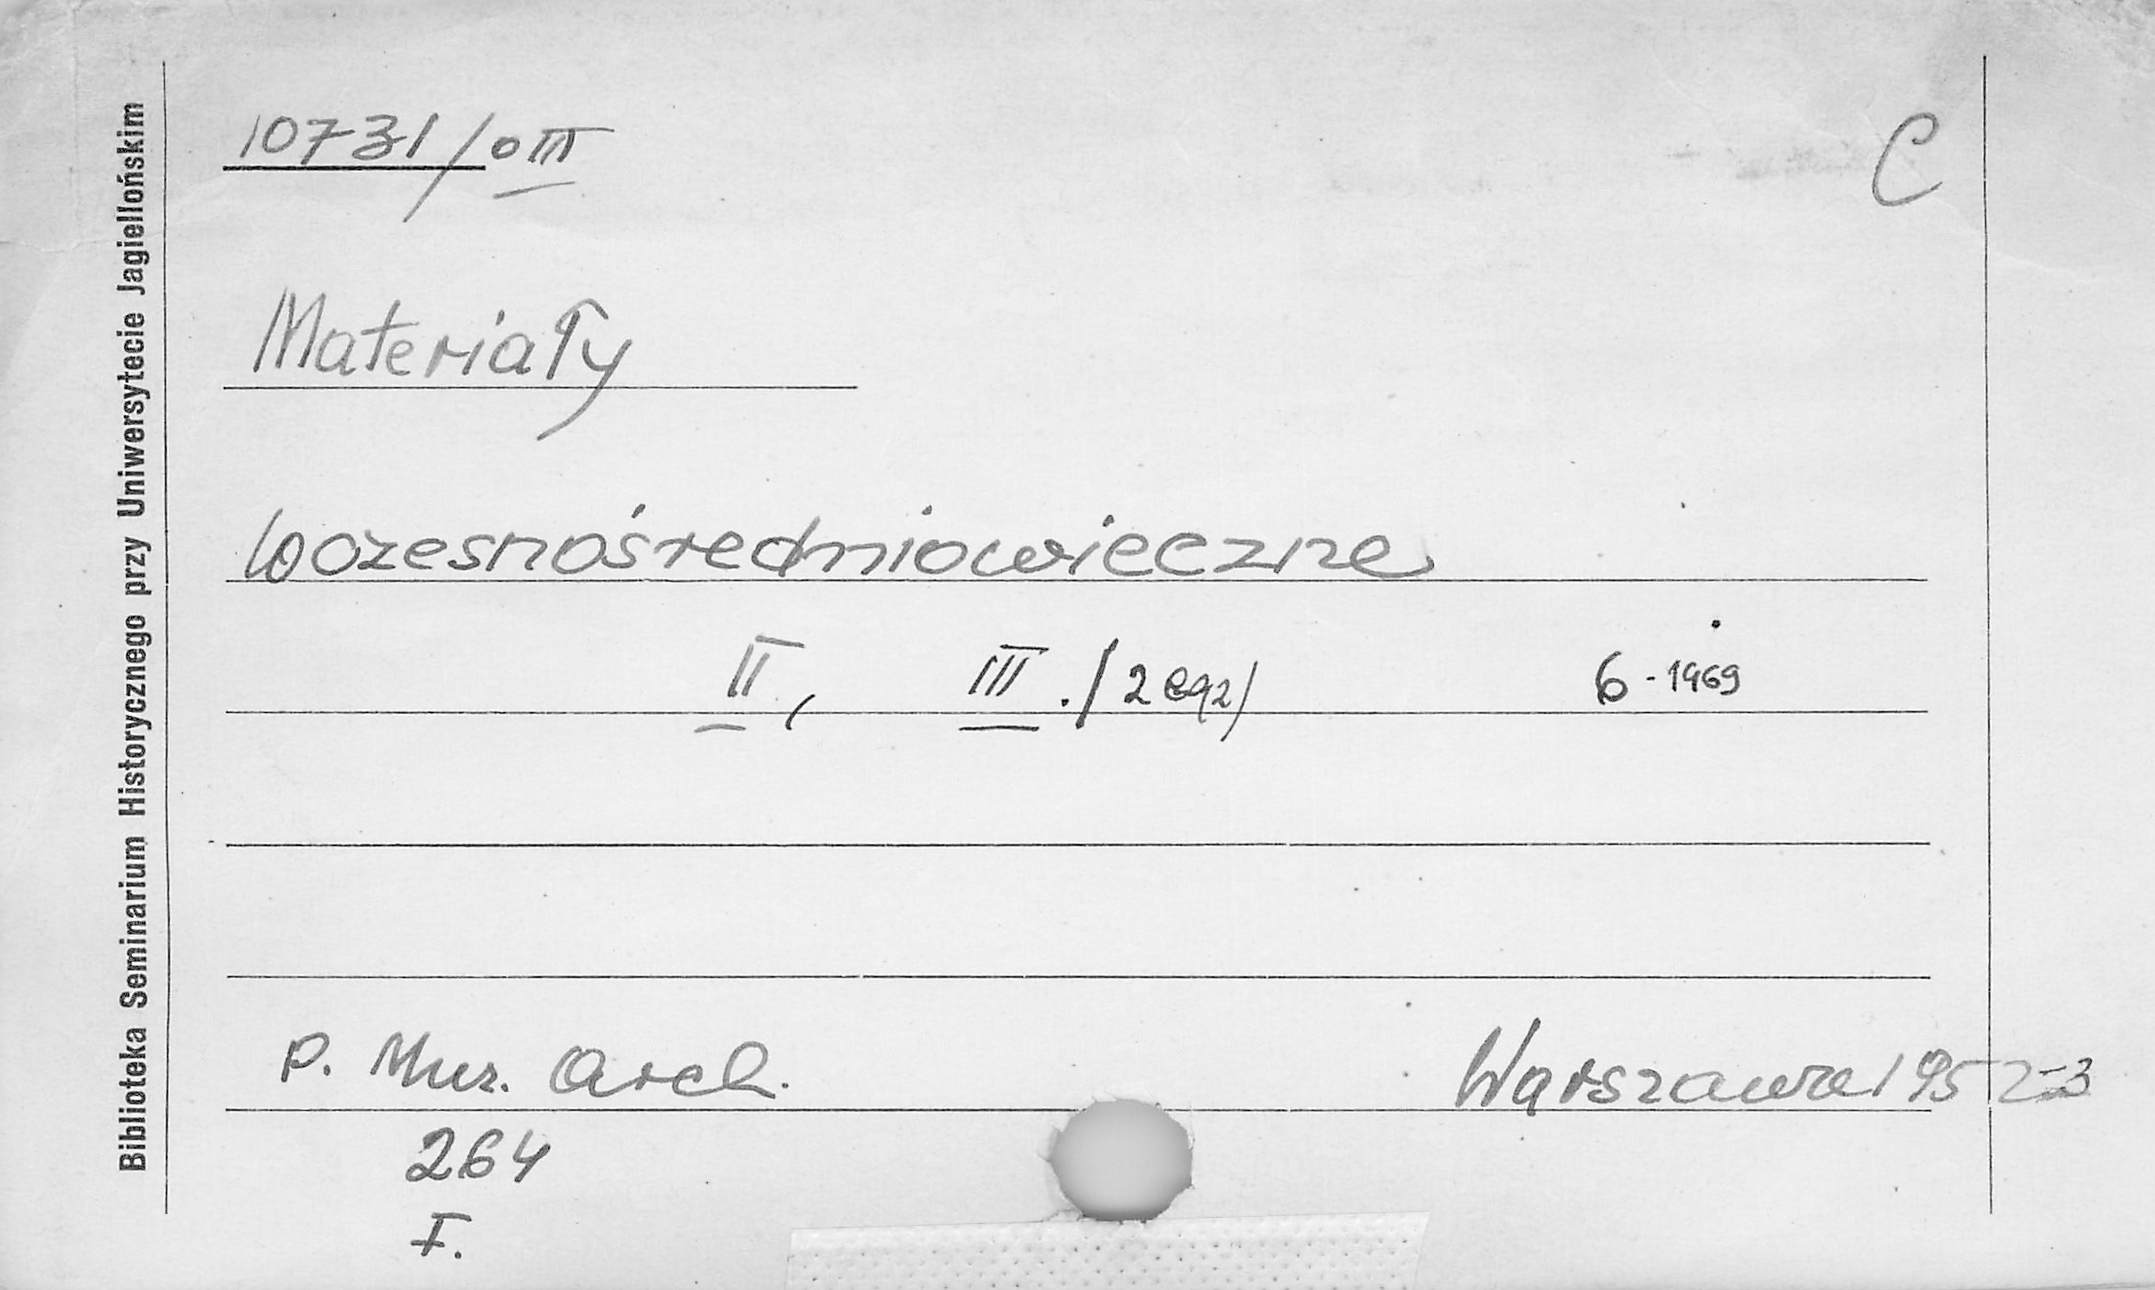 Biblioteka Seminarium Historycznego przy Uniwersytecie Jagiellońskim
10731/o III
C
Materiały
wczesnośredniowieczne
II, III. /2 egz/ 6-1969
P. Muz. Arch. Warszawa 1952-3
264
I.